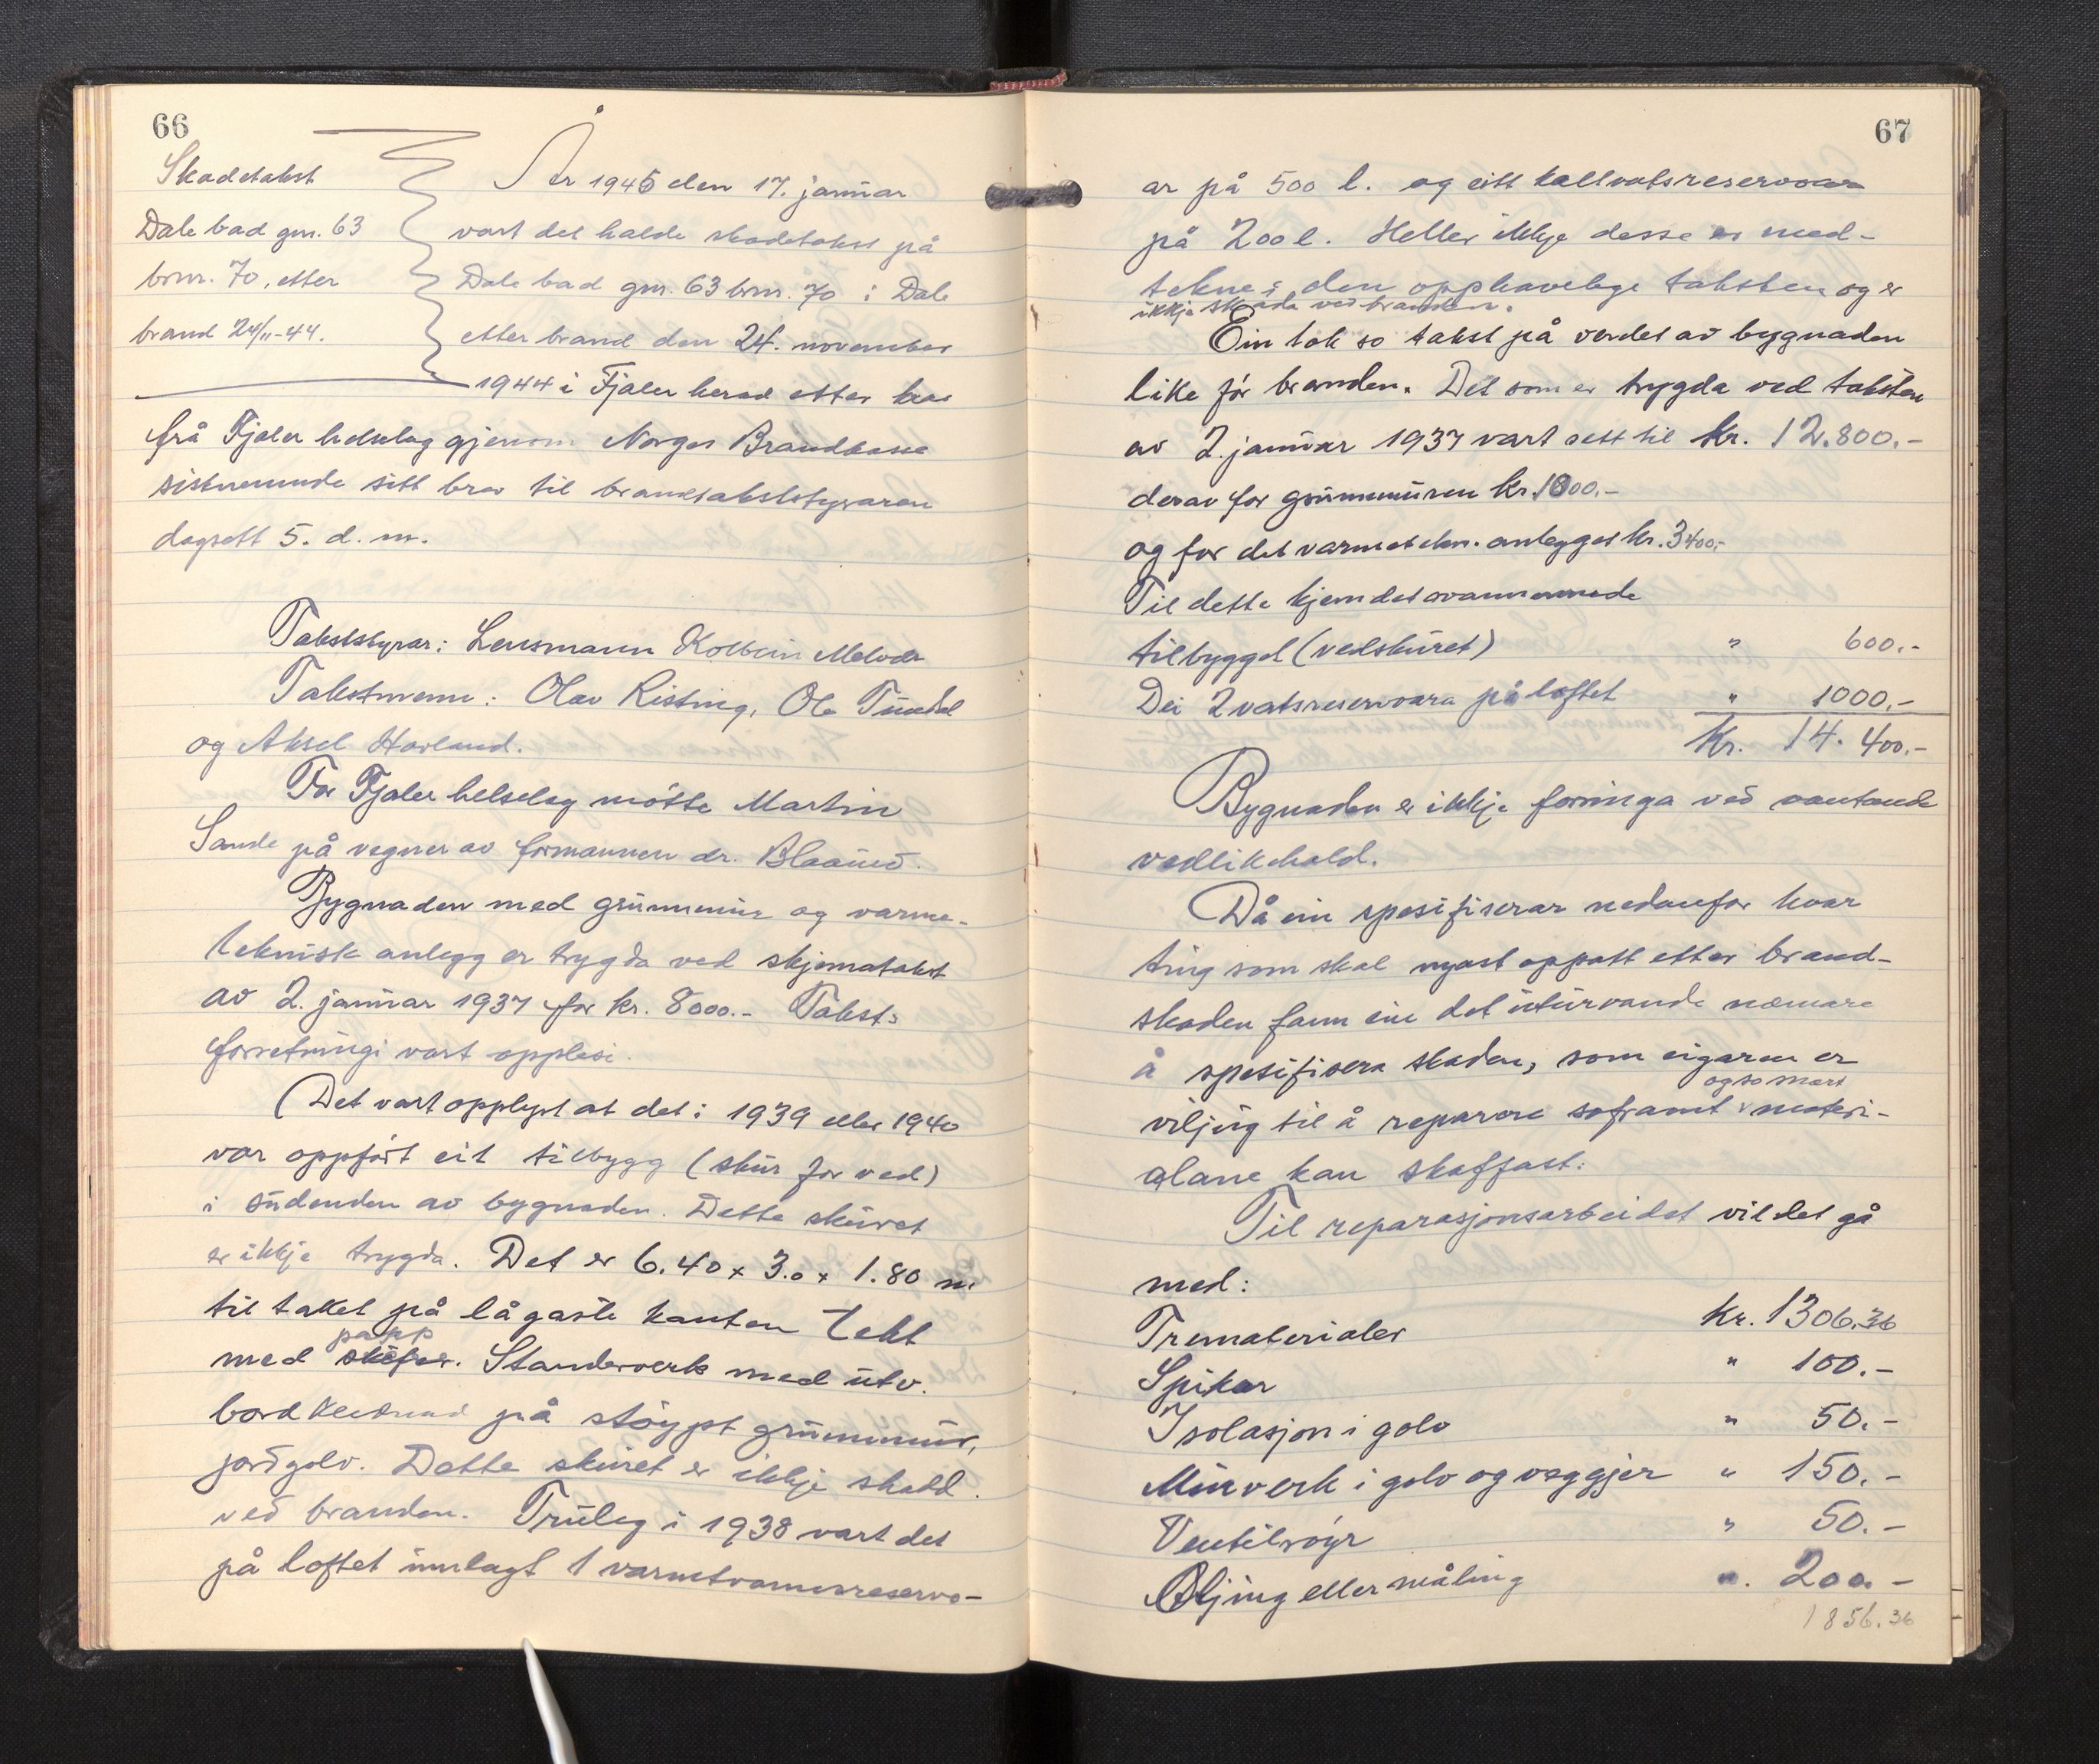 66
Skadetakst
Dale bad gnr. 63
brnr. 70, etter
brand 24/11-44.
År 1945 den 17. januar
vart det halde skadetakst på
Dale bad gnr. 63 brnr. 70 i Dale
etter brand den 24. november
1944 i Fjaler herad etter krav
frå Fjaler helselag gjenom Norges Brandkasse
sistnemnde sitt brev til brandtakststyraren
dagsett 5. d. m.
Takststyrar: Lensmann Kolbein Melvær
Takstmenn: Olav Risting, Ole Tundal
og Aksel Hovland.
For Fjaler helselag møtte Martin
Sande på vegner av formannen dr. Blaauw.
Bygnaden med grunnmur og varme-
teknisk anlegg er trygda ved skjematakst
av 2. januar 1937 for kr. 8000.- Takst-
forretningi vart opplesi.
Det vart opplyst at det i 1939 eller 1940
var oppført eit tilbygg (skur for ved)
i sudenden av bygnaden. Dette skuret
er ikkje trygda. Det er 6.40 x 3.0 x 1.80 m.
til taket på lågaste kanten tekt
papp
med skifer. Standerverk med utv.
bordkledning på støypt grunnmur,
jordgolv. Dette skuret er ikkje skadd
ved branden. Truleg i 1938 vart det
på loftet innlagt 1 varmtvannsreservo-
67
ar på 500 l. og eitt kaltvatsreservoar
på 200 l. Heller ikkje desse er med-
tekne i den opphavelege taksten og er
ikkje skada ved branden.
Ein tok so takst på verdet av bygnaden
like før branden. Det som er trygda ved taksten
av 2. januar 1937 vart sett til kr. 12.800.-
derav for grunnmuren kr. 1800.-
og for det varmetekn. anlegget kr. 3400.-
Til dette kjem det ovannemnde
tilbygget (vedskuret) " 600.-
Dei 2 vatsreservoara på loftet " 1000.-
Kr. 14.400.-
Bygnaden er ikkje forringa ved vantande
vedlikehald.
Då ein spesifiserar nedanfor kvar
ting som skal nyast oppatt etter brand-
skaden fann ein det uturvande næmare
å spesifisera skaden, som eigaren er
ogso snart
viljug til å reparere soframt v materi-
alane kan skaffast:
Til reparasjonsarbeidet vil det gå
med:
Trematerialer kr. 1306.36
Spikar " 100.-
Isolasjon i golv " 50.-
Murverk i golv og veggjer " 150.-
Ventilrøyr " 50.-
Oljing eller måling " 200.-
1856.36